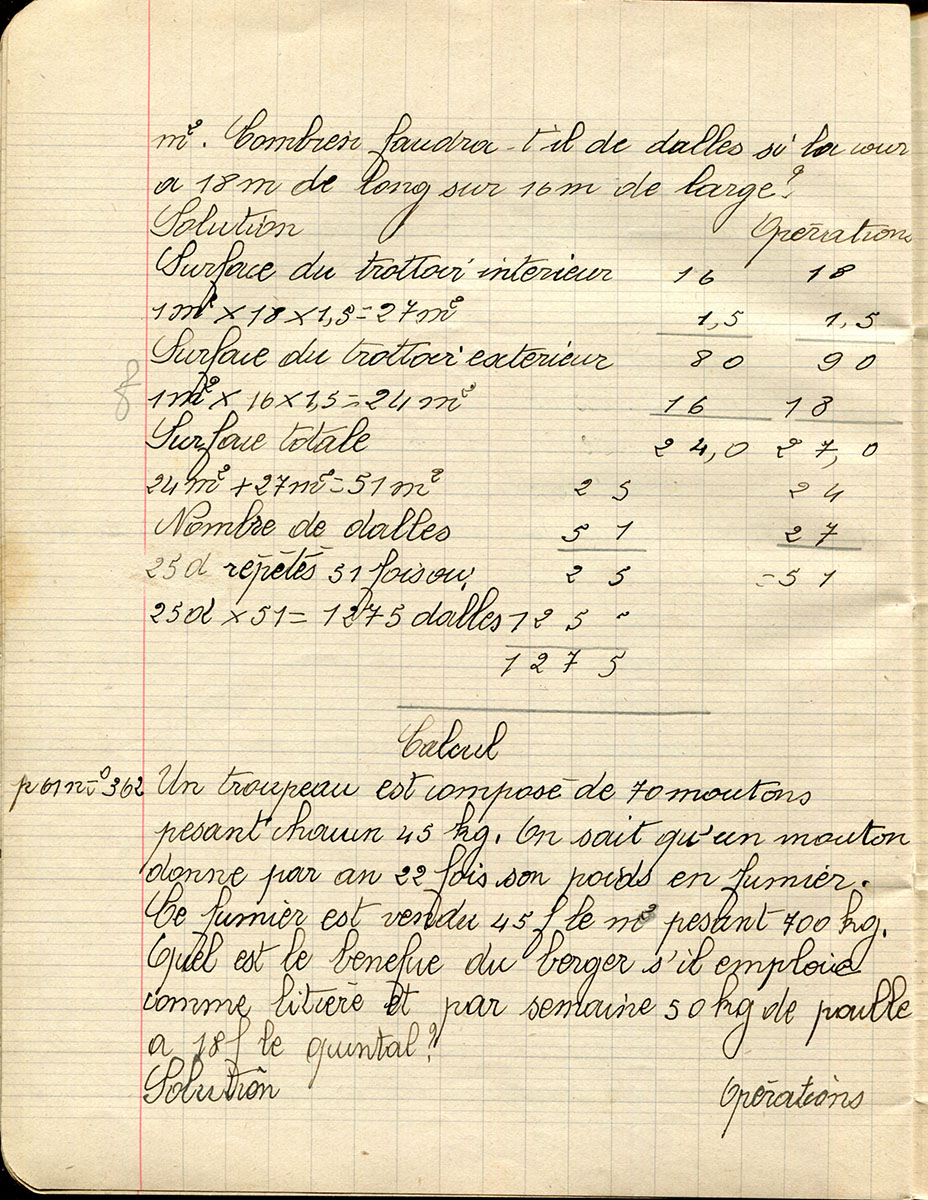 m². Combien faudra-t'il de dalles si la cour
a 18m de long sur 16m de large?
Solution Opérations
Surface du trottoir interieur 16 18
1m² × 18 × 1,5 = 27m² 1,5 1,5
Surface du trottoir exterieur 80 90
1m² × 16 × 1,5 = 24m² 16 18
Surface totale 24,0 27,0
24m² + 27m² = 51m² 25 24
Nombre de dalles 51 27
25d répétés 51 fois ou, 25 = 51
25d × 51 = 1275 dalles 125
1275
Calcul
p 61 n° 362 Un troupeau est composé de 70 moutons
pesant chacun 45 kg. On sait qu'un mouton
donne par an 22 fois son poids en fumier.
Ce fumier est vendu 45f le m³ pesant 700 kg.
Quel est le benefice du berger s'il emploie
comme litière et par semaine 50 kg de paille
a 18f le quintal?
Solution Opérations